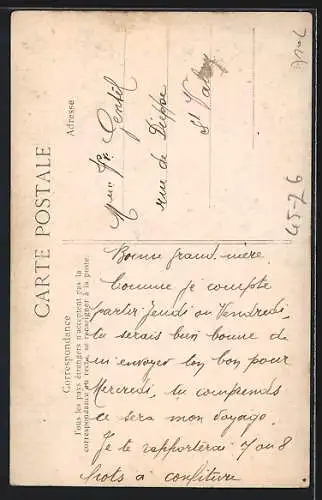 CARTE POSTALE
Correspondance
Tous les pays étrangers n'acceptent pas la
correspondance au recto, se renseigner à la poste.
Adresse
Mme Vve Gentil
rue de Dieppe
St Valery
45-76
Bonne grand-mère
Comme je compte
partir Jeudi ou Vendredi
tu serais bien bonne de
m'envoyer ton bon pour
Mercredi, tu comprends
ce sera mon voyage.
Je te rapporterai 7 ou 8
pots à confiture